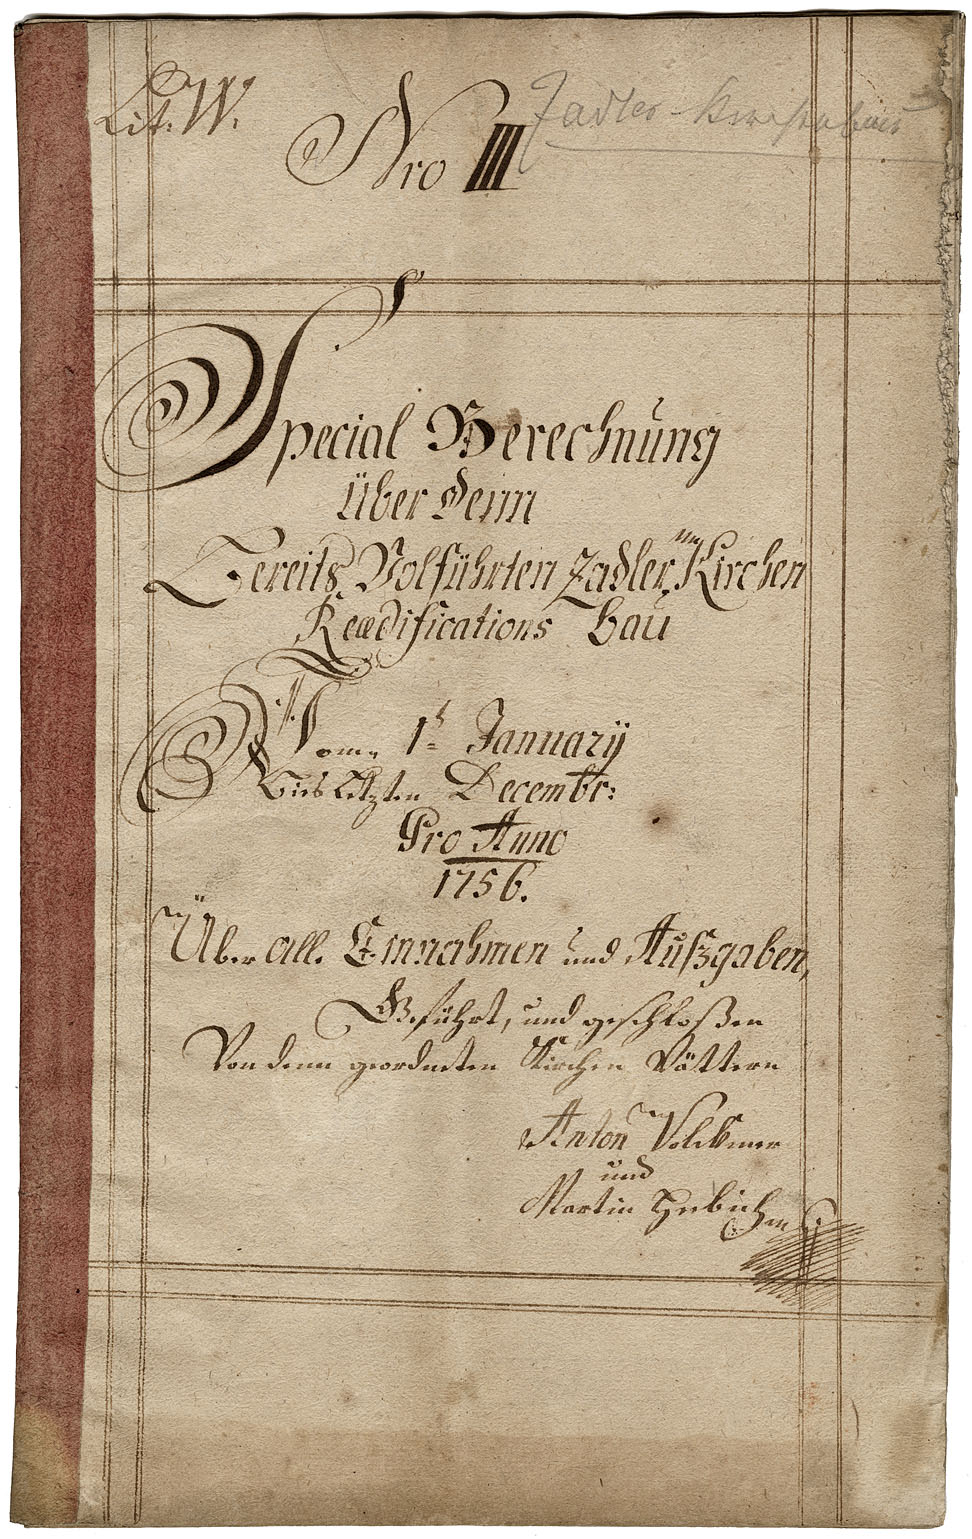 Lit: W.
Nro III
Zadler
Special Berechnung
Über denn
Bereits Volführten Zadler Kirchen
Reædifications Bau
Vom 1t January
Bies Letzten Decembr:
Pro Anno
1756.
Über all. Einnahmen und Außgaben,
Geführt, und geschloßen
Von denn geordneten Kirchen Vättern
Anton Volckmer
und
Martin